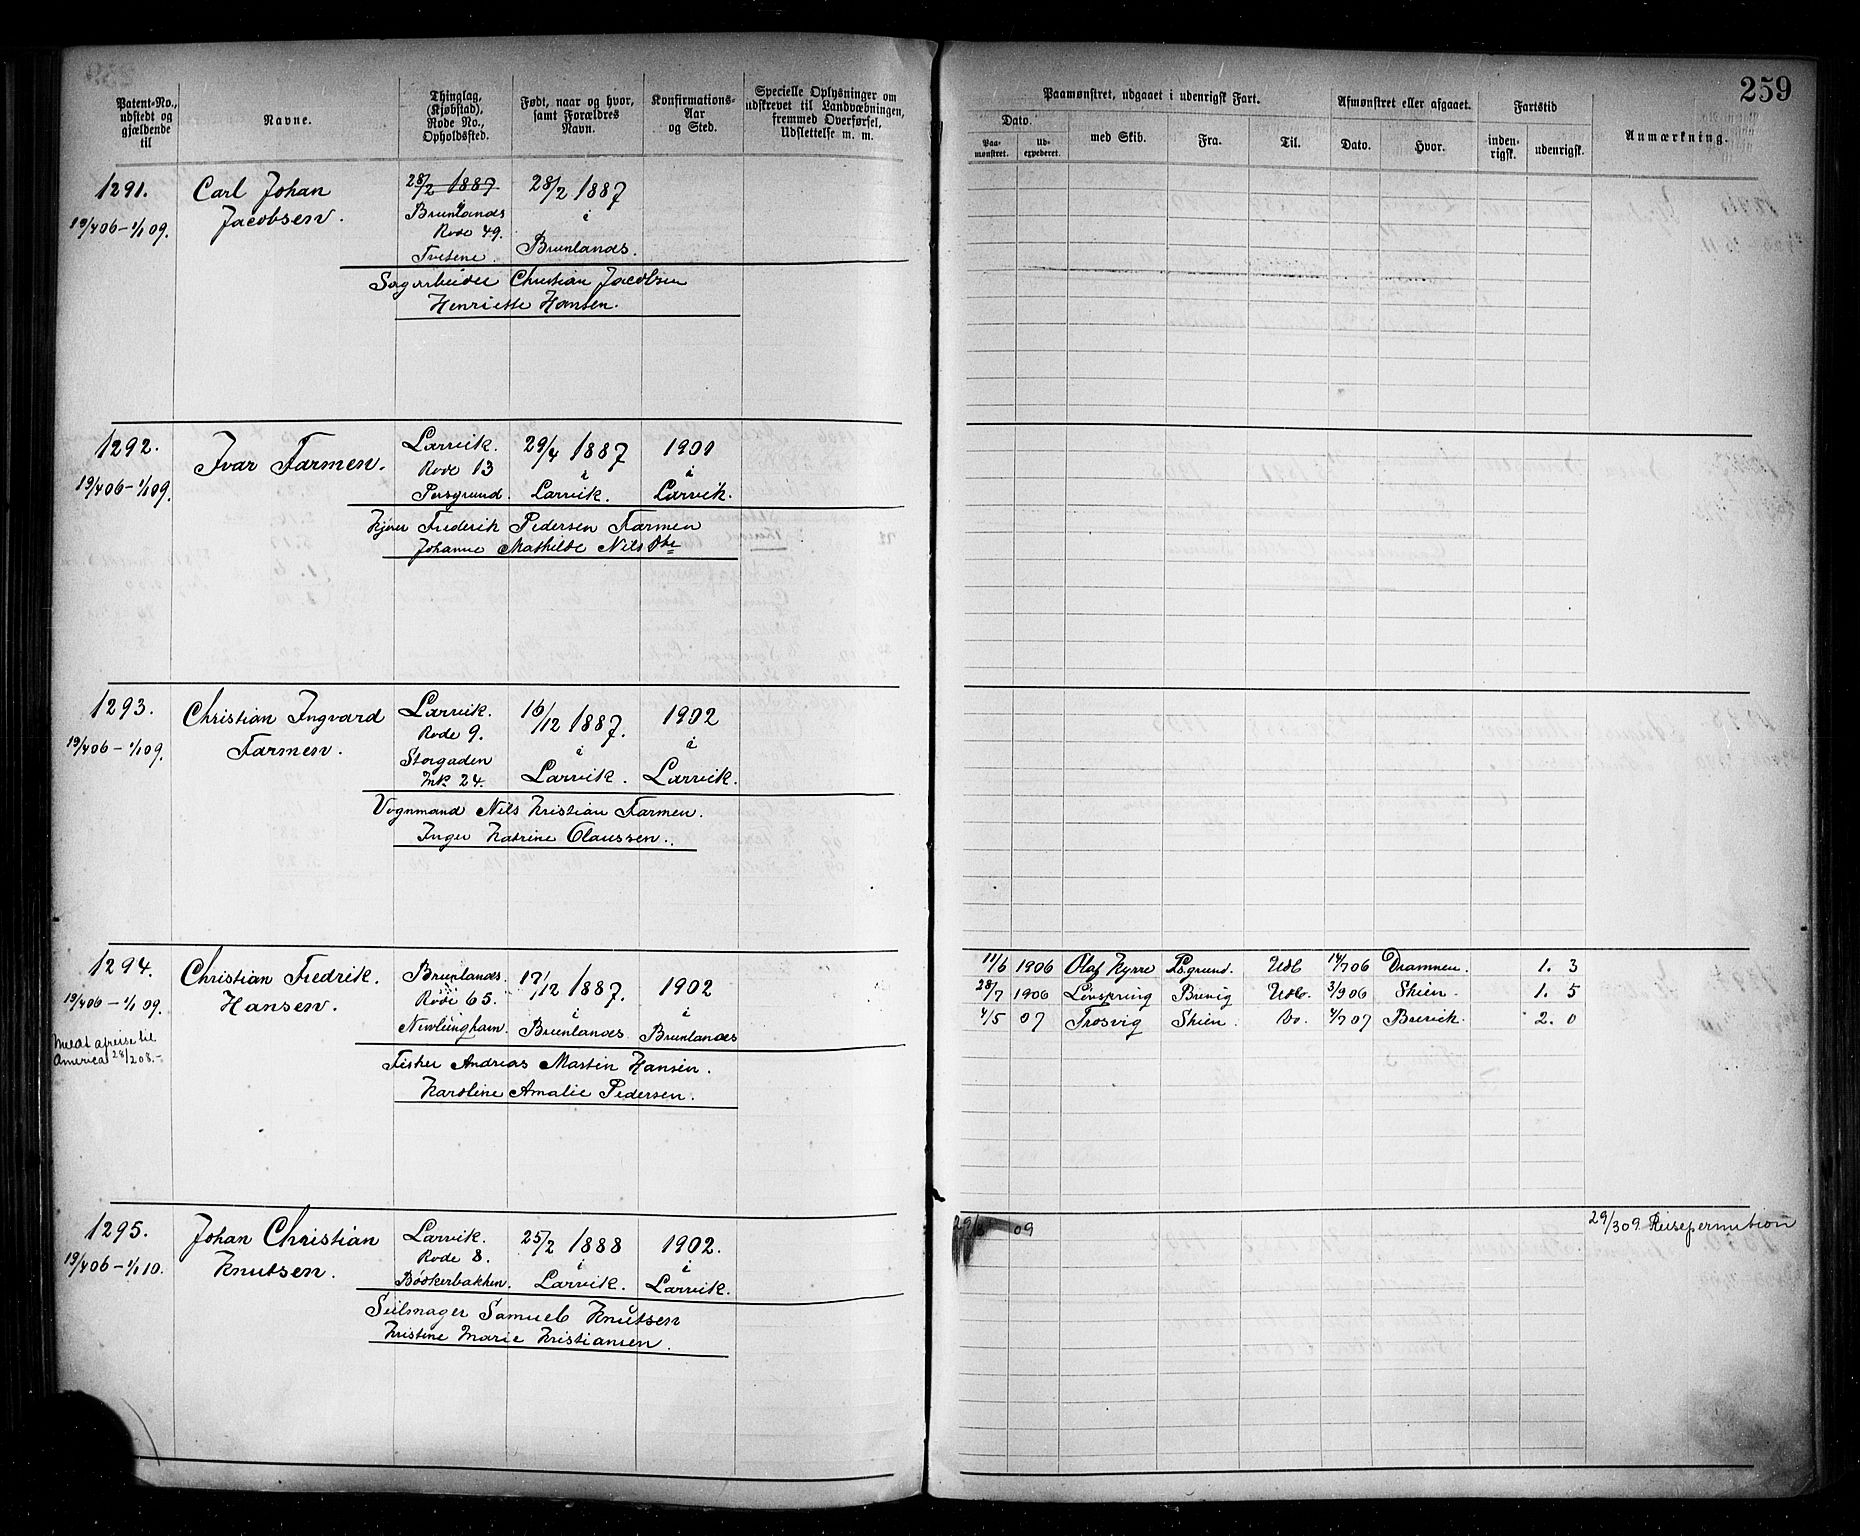 259
Patent-No., udstedt og gjældende til
Navne.
Thinglag, (Kjøbstad), Rode No., Opholdssted.
Født, naar og hvor, samt Forældres Navn.
Konfirmations-Aar og Sted.
Specielle Oplysninger om udskrevet til Landværnet, fremmed Overførsel, Udslettelse m. m.
Paamønstret, udgaaet i udenrigsk Fart.
Dato.
Paa-mønstret.
Ud-expederet.
med Skib.
Fra.
Til.
Afmønstret eller afgaaet.
Dato.
Hvor.
Fartstid
inden-rigsk.
udenrigsk.
Anmærkning.
1291.
19/4 06 – 1/1 09.
Carl Johan
Jacobsen.
28/2 1887
Brunlanæs
Rode 49.
Tvetene.
28/2 1887
i
Brunlanæs.
Christian Jacobsen
Henriette Hansen.
1292.
19/4 06 – 1/1 09.
Ivar Farmen.
Larvik.
Rode 13
29/4 1887
i
Larvik.
1901
i
Larvik.
Frederik Pedersen Farmen
Johanne Mathilde Nils Dtr
1293.
19/4 06 – 1/1 09.
Christian Ingvard
Farmen.
Larvik.
Rode 9.
Storgaden
Mk 24.
16/12 1887.
i
Larvik.
1902
i
Larvik.
Vognmand Nils Kristian Farmen.
Inger Katrine Claussen.
1294.
19/4 06 – 1/1 09.
Meldt afreise til
America 28/2 08.–
Christian Fredrik
Hansen.
Brunlanæs.
Rode 65.
Nevlunghavn.
17/12 1887.
i
Brunlanæs
1902
i
Brunlanæs
Fisker Andreas Martin Hansen.
Karoline Amalie Pedersen.
11/6 1906 Olaf Kyrre Psgrund. Udl 14/7 06 Drammen. 1. 3
28/7 1906 Løvspring Brevig Udl. 3/9 06 Skien. 1. 5
4/5 07 Trosvig Skien. Do. 4/7 07 Brevik. 2. 0
1295.
19/4 06 – 1/1 10.
Johan Christian
Knutsen.
Larvik.
Rode 8.
Bøkkerbakken.
25/2 1888
i
Larvik.
1902.
i
Larvik.
Seilmager Samuel Knutsen
Kristine Marie Kristiansen.
29/3 09
29/3 09 Reisepermition